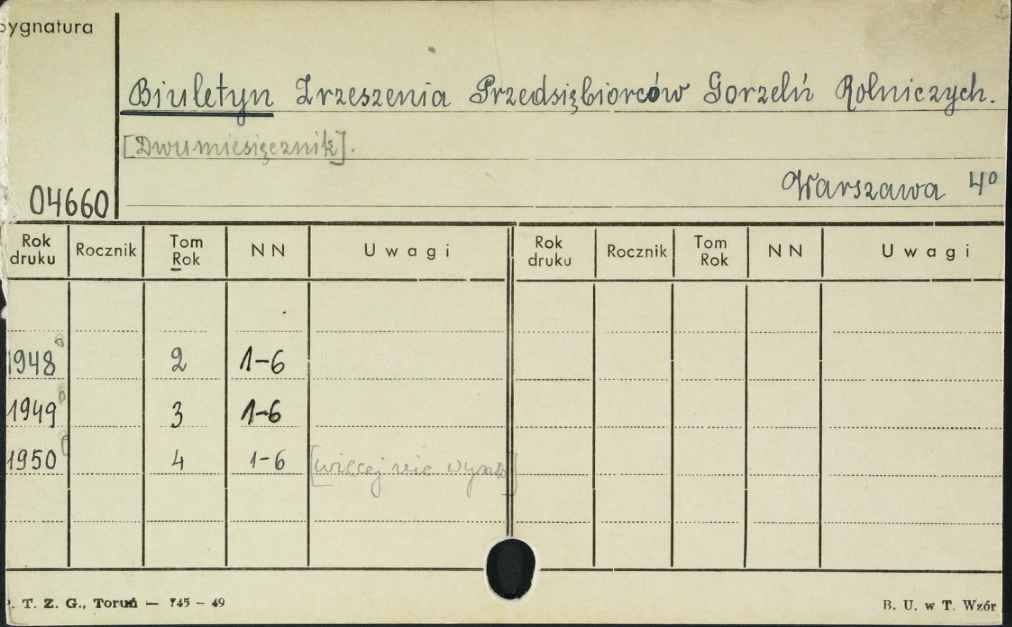 Sygnatura
Biuletyn Zrzeszenia Przedsiębiorców Gorzelń Rolniczych.
[Dwumiesięcznik].
Warszawa 4º
04660
Rok druku Rocznik Tom Rok NN Uwagi Rok druku Rocznik Tom Rok NN Uwagi
1948 2 1-6
1949 3 1-6
1950 4 1-6 [więcej nie wyszło]
. T. Z. G., Toruń — 745 - 49
B. U. w T. Wzór